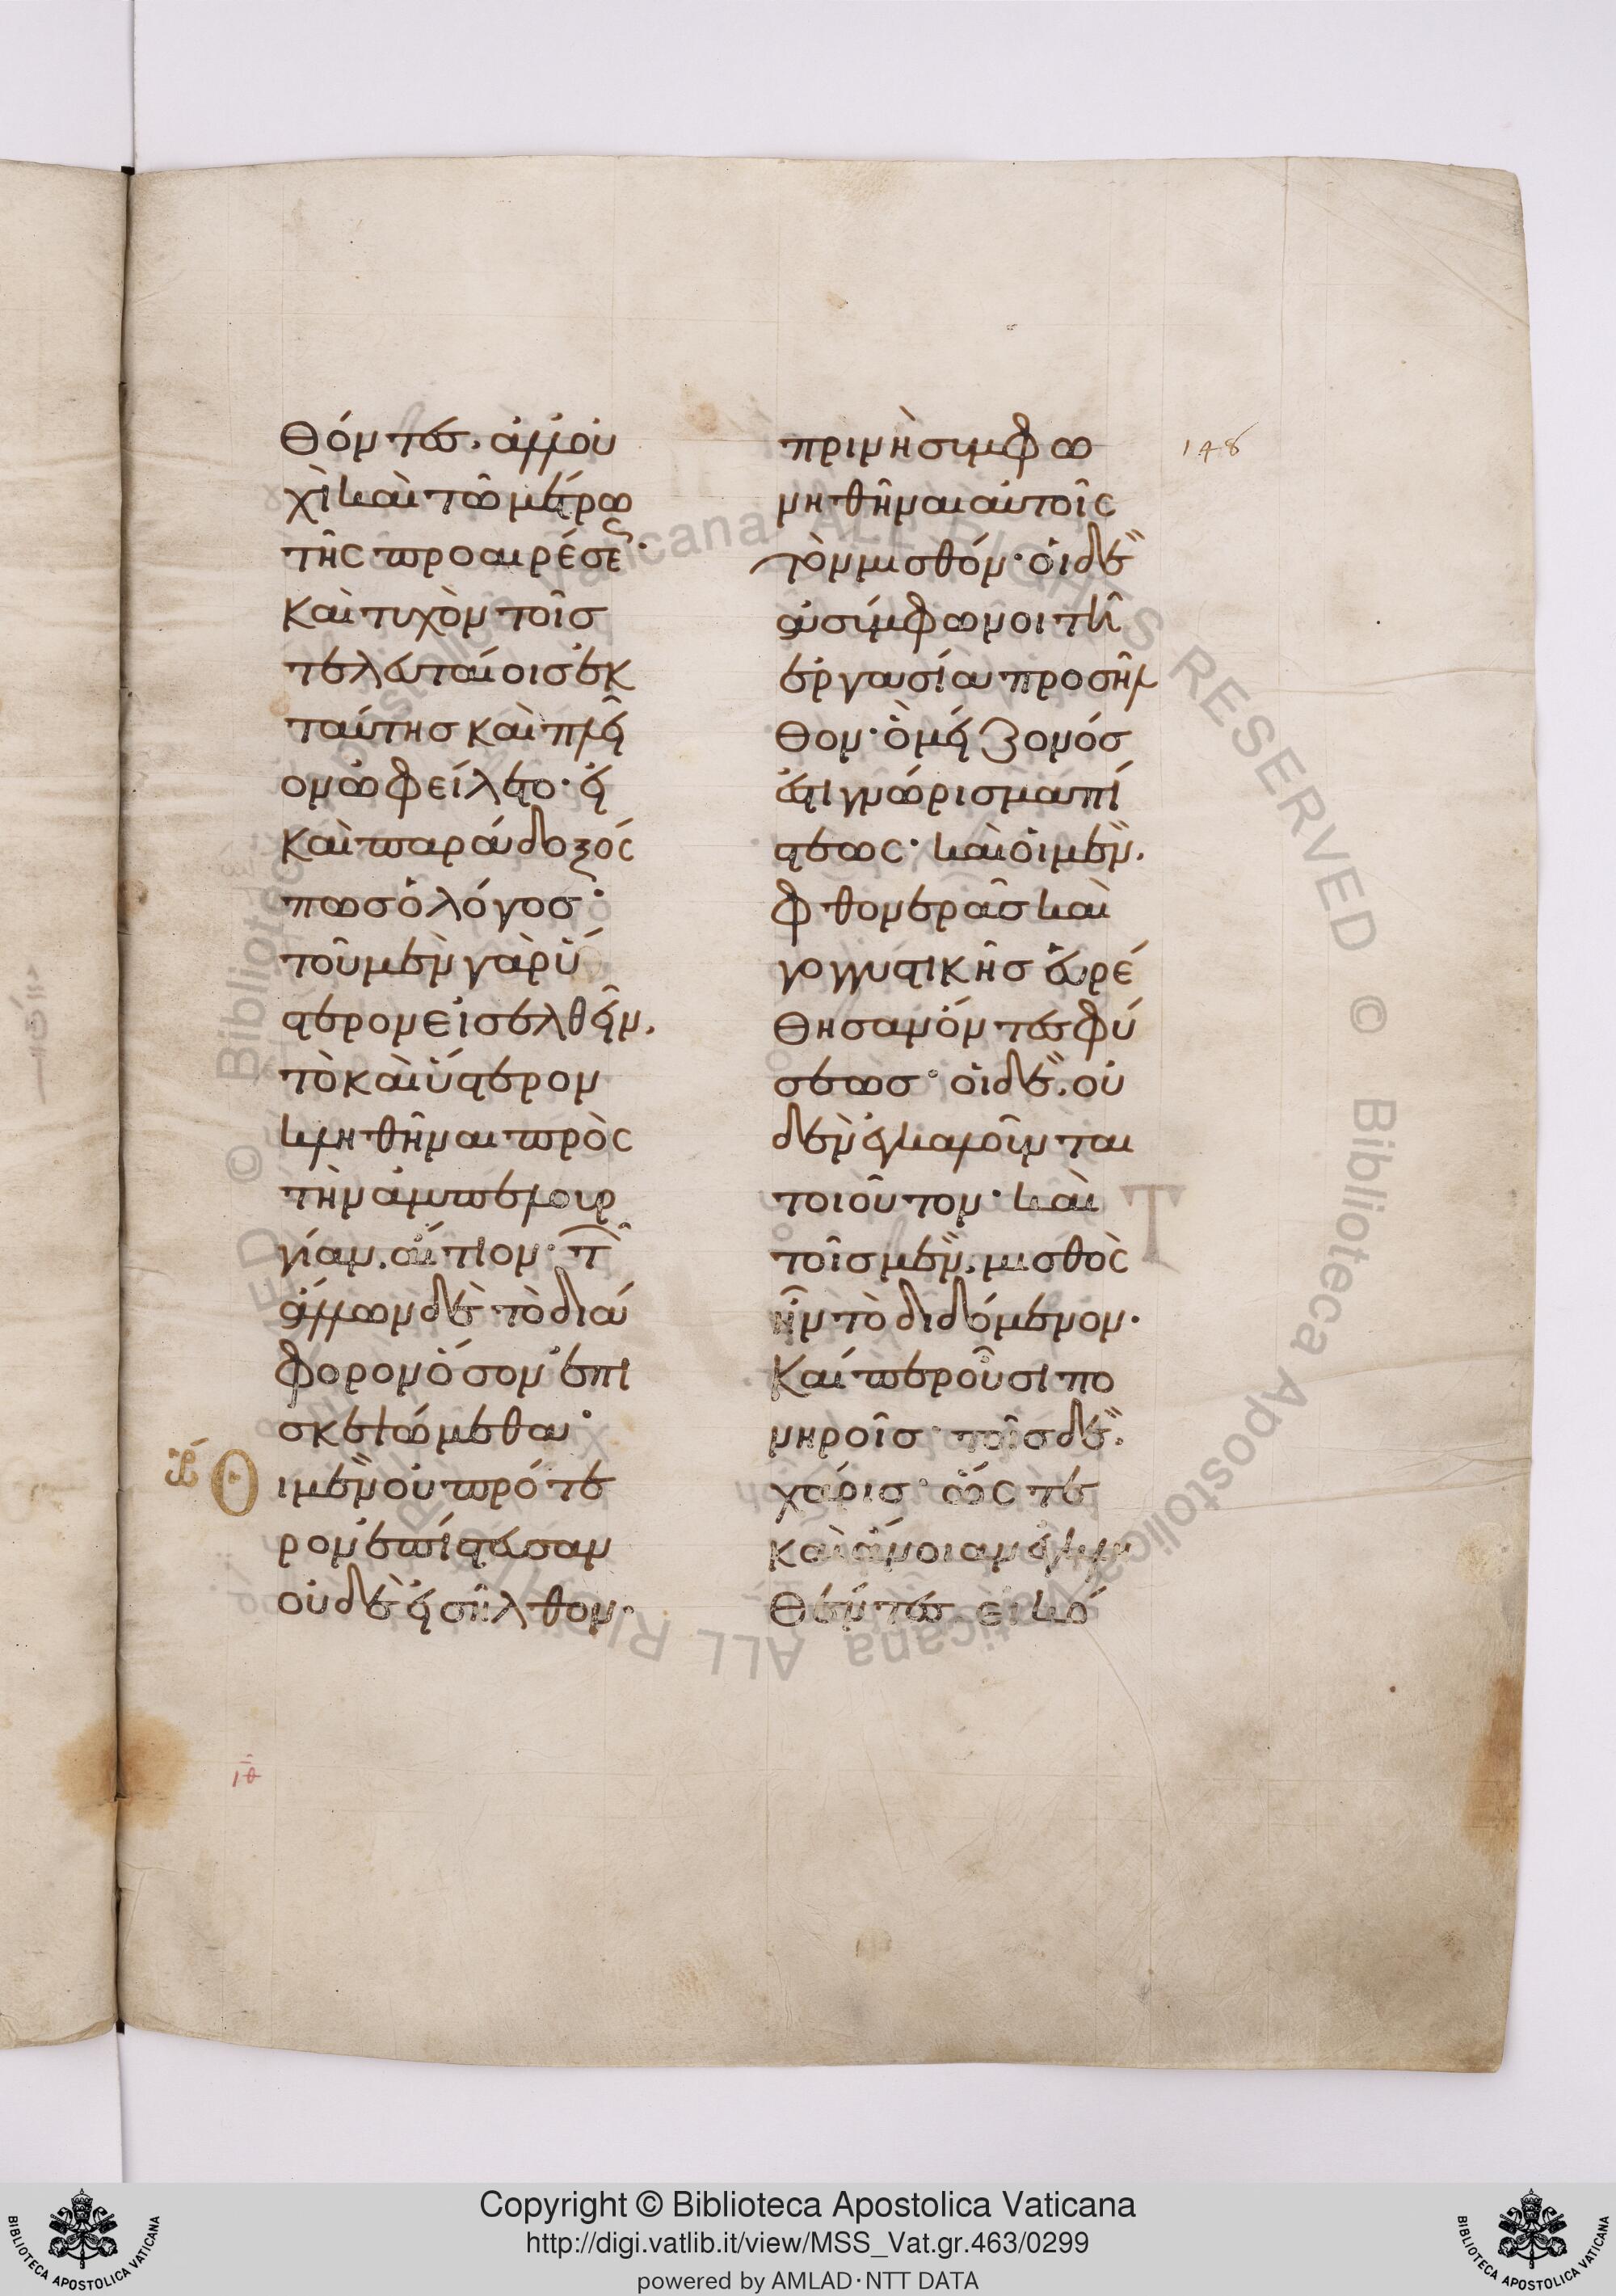 θόντες. ἀλλ' οὐ
χὶ καὶ τῶ μέτρω
τῆς προαιρέσεως·
Καὶ τυχὸν τοῖσ
τελευταίοισ ἐκ
ταύτησ καὶ πλεῖ
ον ὠφείλετο· εἰ
καὶ παράδοξός
πωσ ὁ λόγοσ·
τοῦ μὲν γὰρ ὕ
στερον εἰσελθεῖν,
τὸ καὶ ὕστερον
κληθῆναι πρὸς
τὴν ἀμπελουρ
γίαν, αἴτιον· τῶν
ἄλλων δὲ τὸ διά
φορον ὅσον ἐπι
σκεψώμεθα·
Οἱ μὲν οὐ πρότε
ρον ἐπίστευσαν
οὐδὲ εἰσῆλθον·
πρινὴ συμφω
νηθῆναι αὐτοῖς
τὸν μισθόν· οἱ δὲ
ἀσύμφωνοι τῆ
ἐργασία προσῆλ
θον· ὃ μείζονόσ
ἐστι γνώρισμα πί
στεως· καὶ οἱ μὲν,
φθονερᾶσ καὶ
γογγυστικῆσ εὑρέ
θησαν ὄντες φύ
σεωσ· οἱ δὲ, οὐ
δὲν ἐγκαλοῦνται
τοιοῦτον· καὶ
τοῖσ μὲν, μισθὸς
ἦν τὸ διδόμενον·
Καίπερ οὖσι πο
νηροῖσ· τοῖσ δὲ,
χάρισ· ὥς τε
καὶ ἄνοιαν ἐγκλη
θέντες, εἰκό
148
ιθ
Copyright © Biblioteca Apostolica Vaticana
http://digi.vatlib.it/view/MSS_Vat.gr.463/0299
powered by AMLAD·NTT DATA
BIBLIOTECA APOSTOLICA VATICANA
BIBLIOTECA APOSTOLICA VATICANA